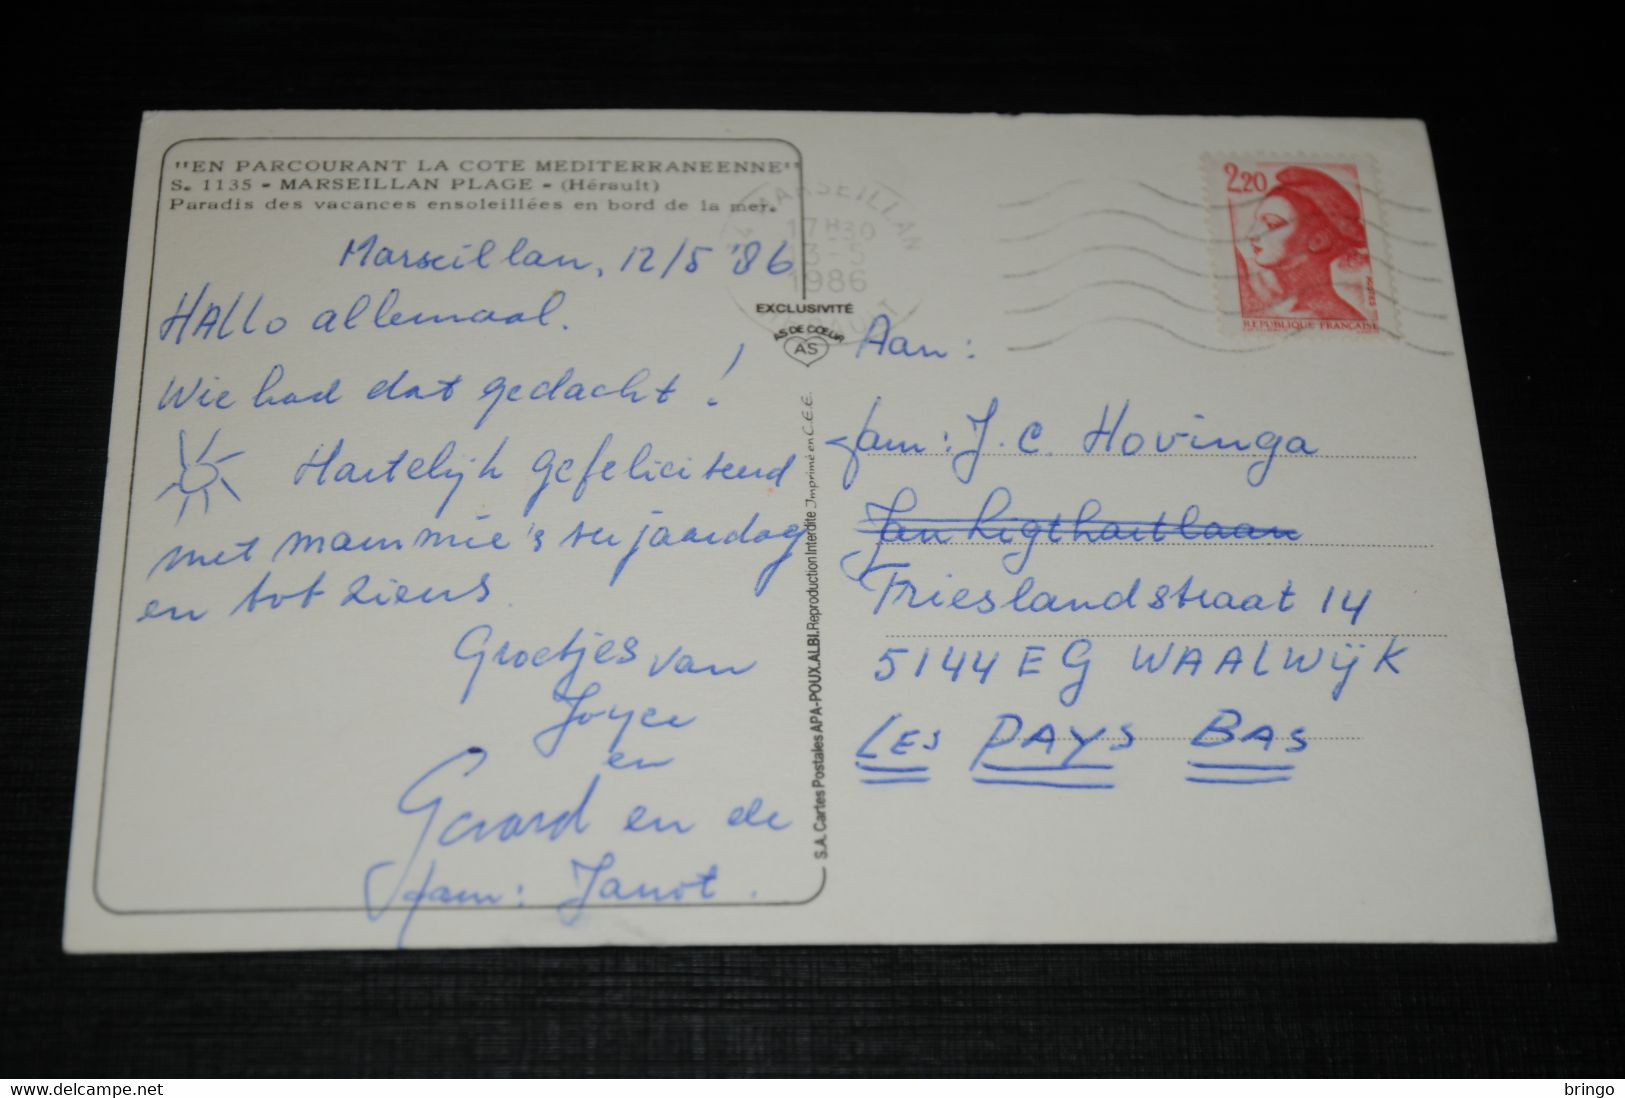 "EN PARCOURANT LA COTE MEDITERRANEENNE"
S. 1135 - MARSEILLAN PLAGE - (Hérault)
Paradis des vacances ensoleillées en bord de la mer.
Marseillan, 12/5 '86
HALLo allemaal.
Wie had dat gedacht!
Hartelijk gefeliciteerd
met mammie's verjaardag
en tot ziens.
Groetjes van
Joyce
en
Gerard en de
fam: Janot.
MARSEILLAN
17H30
13-5
1986
HERAULT
EXCLUSIVITÉ
AS DE CŒUR
AS
S.A. Cartes Postales APA-POUX.ALBI. Reproduction Interdite Imprimé en C.E.E.
2,20
POSTES
REPUBLIQUE FRANÇAISE
Aan:
fam: J. C. Hovinga
Jan Ligthartlaan
Frieslandstraat 14
5144 EG WAALWijK
LES PAYS BAS
delcampe.net
bringo